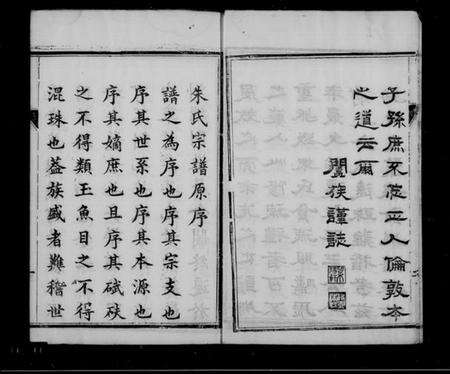 子孫庶不沒正人倫敦本
之道云爾
闔族謹誌
朱氏宗譜原序
譜之為序也序其宗支也
序其世系也序其本源也
序其嫡庶也且序其碔砆
之不得類玉魚目之不得
混珠也蓋族盛者難稽世